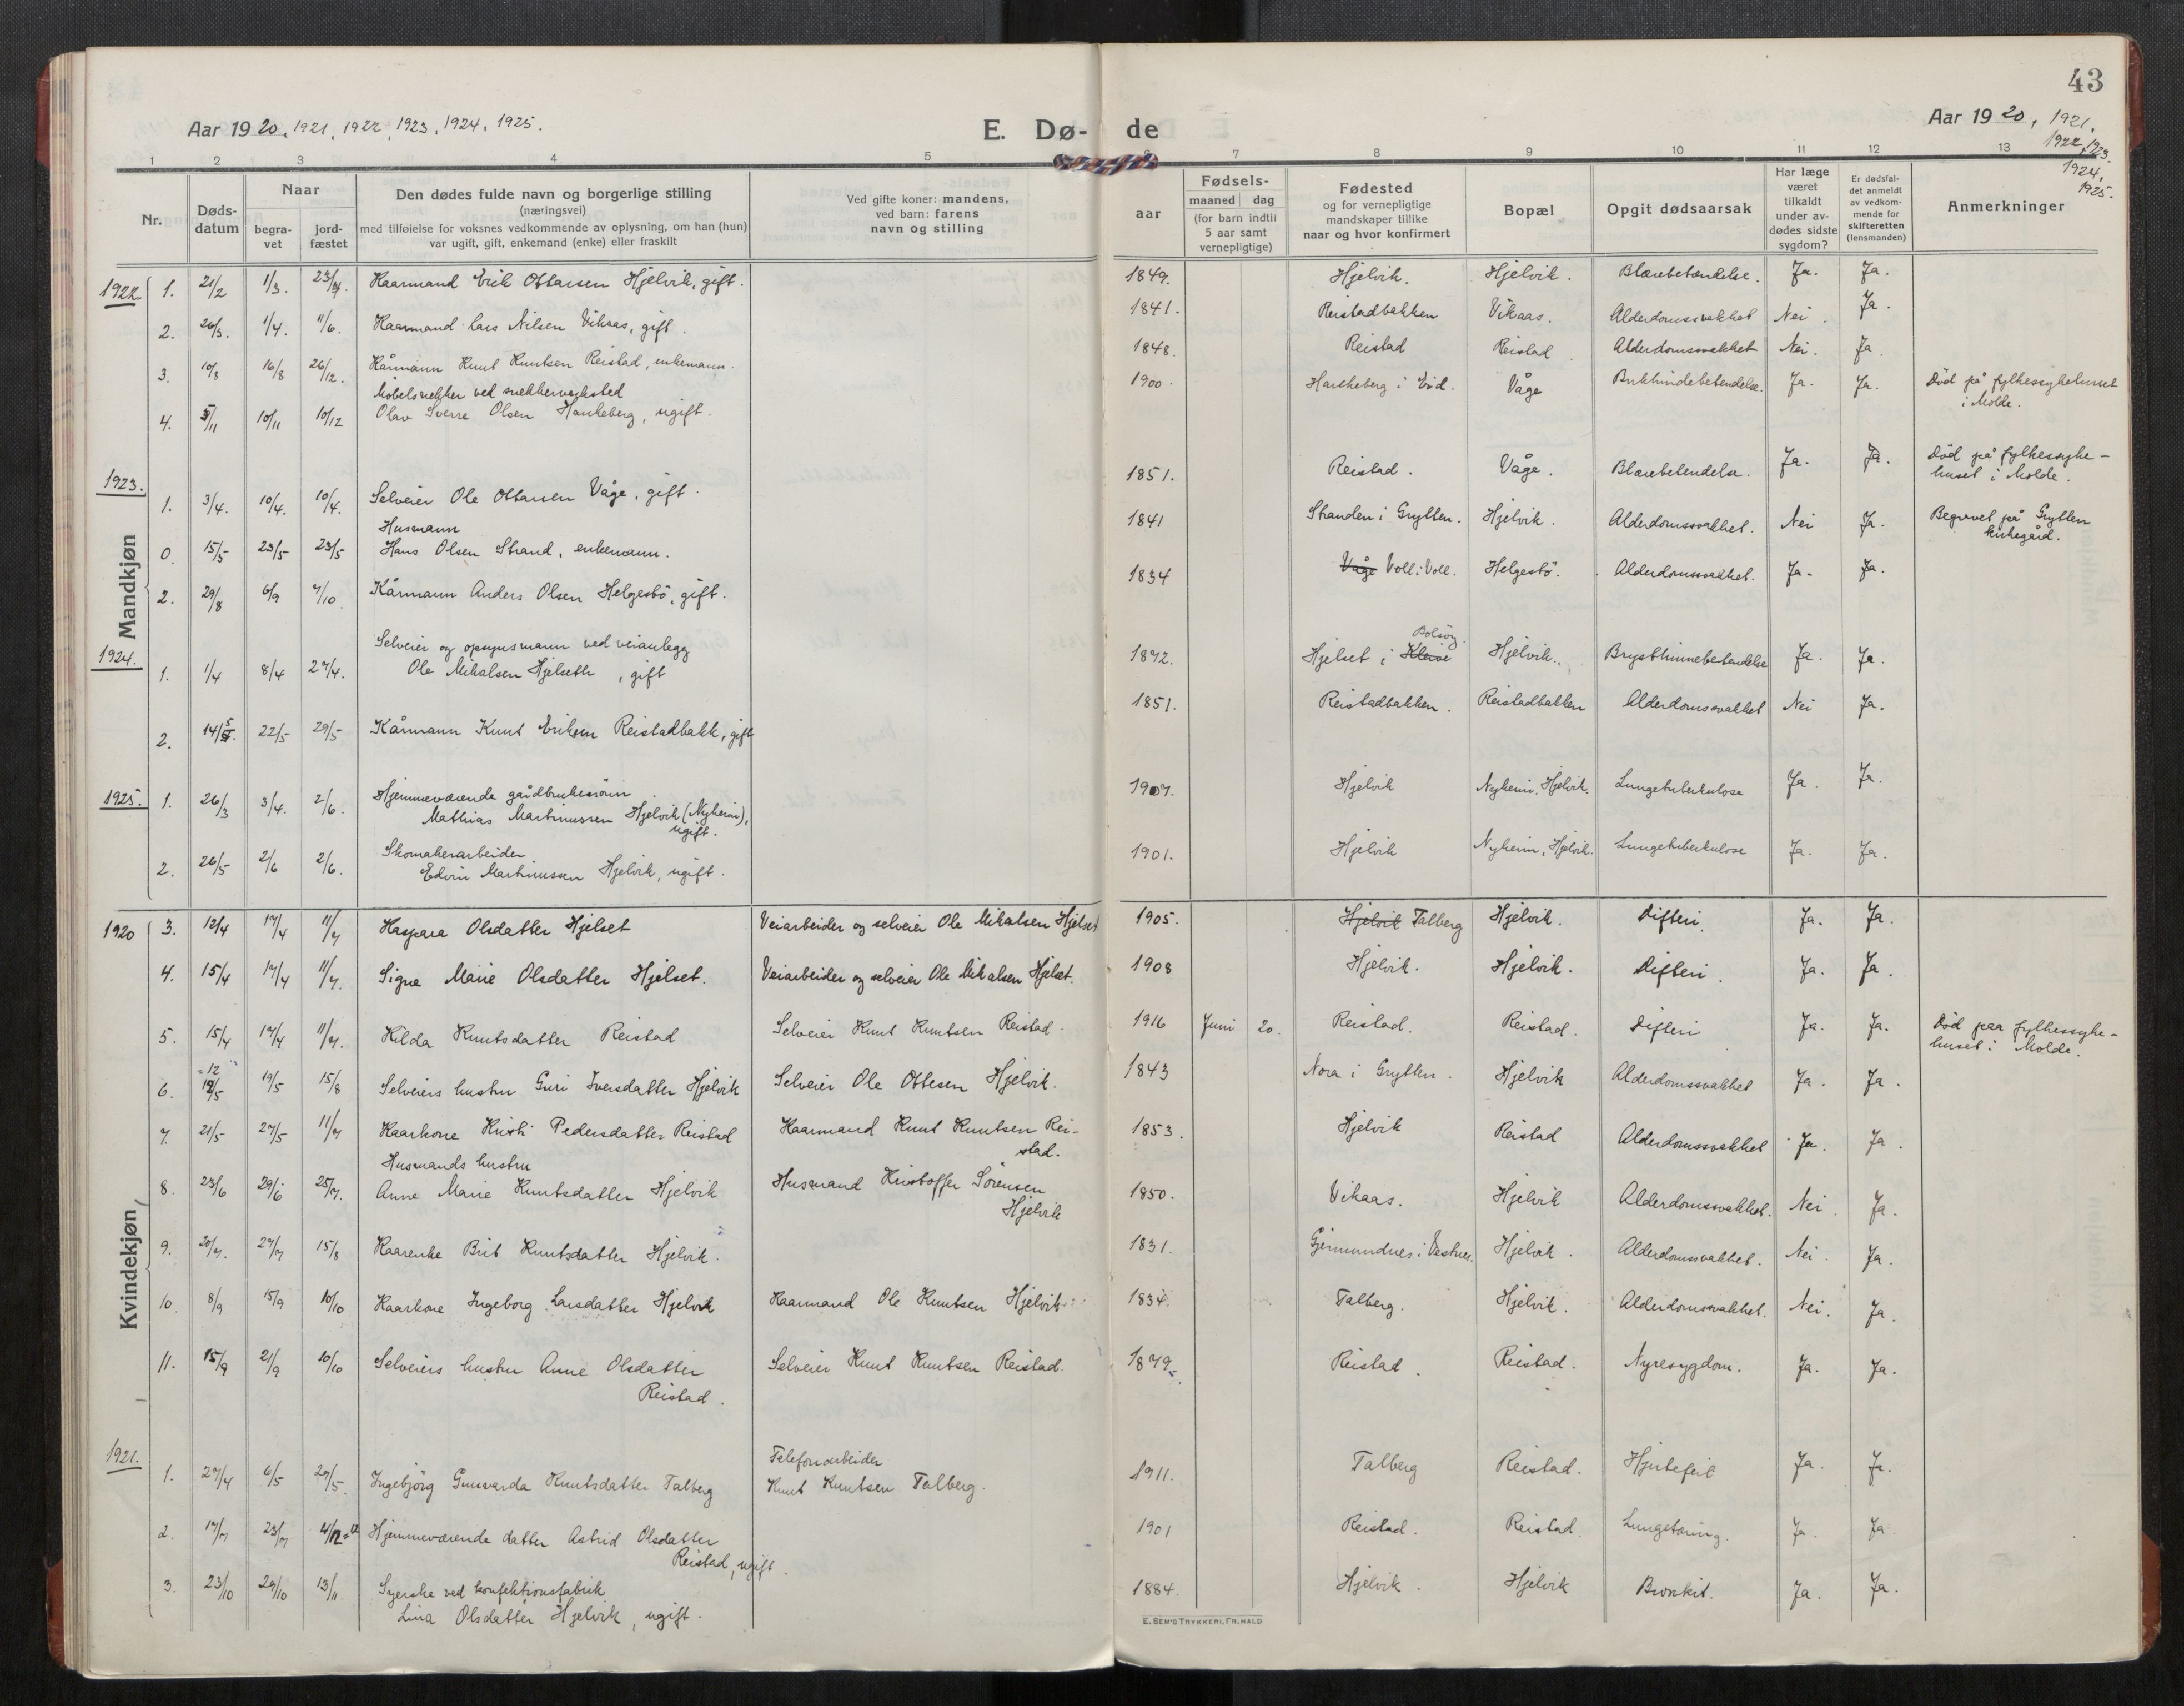 43
Aar 1920, 1921, 1922, 1923, 1924, 1925.
E. Dø- de
Aar 1920, 1921,
1922, 1923.
1924,
1925.
1 2 3 4 5 6 7 8 9 10 11 12 13
Nr. Døds-datum Naar begra-vet jord-fæstet Den dødes fulde navn og borgerlige stilling (næringsvei) med tilføielse for voksnes vedkommende av oplysning, om han (hun) var ugift, gift, enkemand (enke) eller fraskilt Ved gifte koner: mandens, ved barn: farens navn og stilling aar Fødsels- maaned dag (for barn indtil 5 aar samt vernepligtige) Fødested og for vernepligtige mandskaper tillike naar og hvor konfirmert Bopæl Opgit dødsaarsak Har læge været tilkaldt under av-dødes sidste sygdom? Er dødsfal-det anmeldt av vedkom-mende for skifteretten (lensmanden) Anmerkninger
Mandkjøn
1922. 1. 21/2 1/3. 23/4. Kaarmand Erik Ottarsen Hjelvik, gift. 1849. Hjelvik. Hjelvik. Blærebetændelse. Ja. Ja.
2. 26/3. 1/4. 11/6. Kaarmand Lars Nilsen Vikaas, gift. 1841. Reistadbakken Vikaas. Alderdomssvakhet Nei. Ja.
3. 10/8 16/8 26/12. Kårmann Knut Knutsen Reistad, enkemann. 1848. Reistad Reistad. Alderdomssvakhet Nei. Ja.
Møbelsnekker ved snekkerverksted
4. 5/11 10/11 10/12 Olav Sverre Olsen Haukeberg, ugift. 1900. Haukeberg i Eid. Våge Bukhindebetendelse. Ja. Ja. Død på fylkessykehuset
i Molde.
1923. 1. 3/4. 10/4. 10/4. Selveier Ole Ottarsen Våge, gift. 1851. Reistad. Våge. Blærebetendelse. Ja. Ja. Død på fylkessyke-
huset i Molde.
Husmann
0. 15/5 23/5 23/5 Hans Olsen Strand, enkemann. 1841 Stranden i Grytten. Hjelvik. Alderdomssvakhet. Nei Ja. Begravet på Grytten
kirkegård.
2. 29/8 6/9 7/10. Kårmann Anders Olsen Helgesbö, gift. 1834 Våge Voll i Voll. Helgesbö. Alderdomssvakhet. Ja. Ja.
Selveier og opsynsmann ved veianlegg
Bolsøy
1924. 1. 1/4 8/4 27/4. Ole Mikalsen Hjelseth, gift 1872. Hjelset i Kleive Hjelvik. Brysthinnebetendelse Ja. Ja.
2. 14/5. 22/5 29/5 Kårmann Knut Eriksen Reistadbakk, gift 1851. Reistadbakken. Reistadbakken Alderdomssvakhet Nei Ja.
1925. 1. 26/3 3/4. 2/6. Hjemmeværende gårdbrukersönn
Mathias Martinussen Hjelvik (Nyheim),
ugift. 1907. Hjelvik Nyheim, Hjelvik. Lungetuberkulose Ja. Ja.
Skomakerarbeider
2. 26/5 2/6 2/6. Edvin Martinussen Hjelvik, ugift. 1901. Hjelvik Nyheim, Hjelvik. Lungetuberkulose Ja. Ja.
Kvindekjøn
1920 3. 12/4 17/4 11/7 Kaspara Olsdatter Hjelset Veiarbeider og selveier Ole Mikalsen Hjelset 1905. Hjelvik Talberg Hjelvik. Difteri. Ja. Ja.
4. 15/4 17/4 11/7. Signe Marie Olsdatter Hjelset. Veiarbeider og selveier Ole Mikalsen Hjelset. 1908 Hjelvik. Hjelvik. Difteri. Ja. Ja.
5. 15/4 17/4 11/7. Hilda Knutsdatter Reistad Selveier Knut Knutsen Reistad. 1916 Juni 20. Reistad. Reistad. Difteri Ja. Ja. Død paa fylkessyke-
huset i Molde.
=12
6. 12/5 19/5 15/8 Selveiers hustru Guri Iversdatter Hjelvik Selveier Ole Ottesen Hjelvik. 1843 Nora i Grytten. Hjelvik Alderdomssvakhet Ja. Ja.
7. 21/5 27/5 11/7 Kaarkone Kristi Pedersdatter Reistad Kaarmand Knut Knutsen Rei-
stad. 1853. Hjelvik Reistad Alderdomssvakhet Ja. Ja.
Husmands hustru
8. 23/6 29/6 25/7. Anne Marie Knutsdatter Hjelvik Husmand Kristoffer Sörensen
Hjelvik 1850. Vikaas. Hjelvik Alderdomssvakhet. Nei. Ja.
9. 20/7. 27/7 15/8 Kaarenke Brit Knutsdatter Hjelvik. 1831. Gjermundnes i Vestnes. Hjelvik. Alderdomssvakhet. Nei. Ja.
10. 8/9 15/9 10/10 Kaarkone Ingeborg Larsdatter Hjelvik Kaarmand Ole Knutsen Hjelvik 1834. Talberg. Hjelvik. Alderdomssvakhet. Nei. Ja.
11. 15/9 21/9 10/10 Selveiers hustru Anne Olsdatter
Reistad. Selveier Knut Knutsen Reistad. 1879. Reistad. Reistad. Nyresygdom. Ja. Ja.
1921. Telefonarbeider
1. 27/4 6/5 29/5. Ingebjörg Gunvarda Knutsdatter Talberg Knut Knutsen Talberg. 1911. Talberg Reistad. Hjertefeil Ja. Ja.
2. 17/7 23/7 4/12 Hjemmeværende datter Astrid Olsdatter
Reistad, ugift. 1901 Reistad. Reistad Lungetæring. Ja. Ja
3. 23/10 29/10 13/11 Syerske ved konfektionsfabrik
Lina Olsdatter Hjelvik, ugift. 1884. Hjelvik. Hjelvik Bronkit. Ja. Ja.
E. SEM'S TRYKKERI, FR.HALD